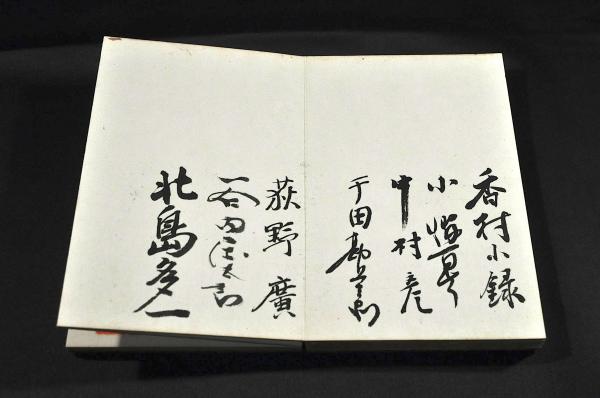 香村小録
小
中村彦
千田勘
荻野廣
谷内
北島多一